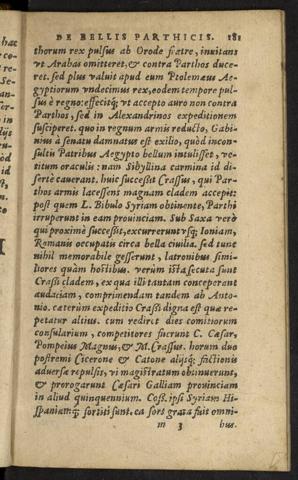 DE BELLIS PARTHICIS. 181
thorum rex pulsus ab Orode fratre, inuitans
vt Arabas omitteret, & contra Parthos duce-
ret. sed plus valuit apud eum Ptolemæus Ae-
gyptiorum vndecimus rex, eodem tempore pul-
sus è regno: effecitq́; vt accepto auro non contra
Parthos, sed in Alexandrinos expeditionem
susciperet. quo in regnum armis reducto, Gabi-
nius à senatu damnatus est exilio, quòd incon-
sultis Patribus Aegypto bellum intulisset, ve-
titum oraculis: nam Sibyllina carmina id di-
sertè cauerant. huic successit Crassus, qui Par-
thos armis lacessens magnam cladem accepit:
post quem L. Bibulo Syriam obtinente, Parthi
irruperunt in eam prouinciam. Sub Saxa verò
qui proximè successit, excurrerunt vsq; Ioniam,
Romanis occupatis circa bella ciuilia. sed tunc
nihil memorabile gesserunt, latronibus simi-
liores quàm hostibus. verùm ista secuta sunt
Crassi cladem, ex qua illi tantam conceperant
audaciam, comprimendam tandem ab Anto-
nio. caterùm expeditio Crassi digna est quæ re-
petatur altius. cum rediret dies comitiorum
consularium, competitores fuerunt C. Cæsar,
Pompeius Magnus, & M. Crassus. horum duo
postremi Cicerone & Catone alijsq; factionis
aduersæ repulsis, vi magistratum obtinuerunt,
& prorogarunt Cæsari Galliam prouinciam
in aliud quinquennium. Coss. ipsi Syriam Hi-
spaniamq́; sortiti sunt. ea sors grata fuit omni-
m 3 bus.